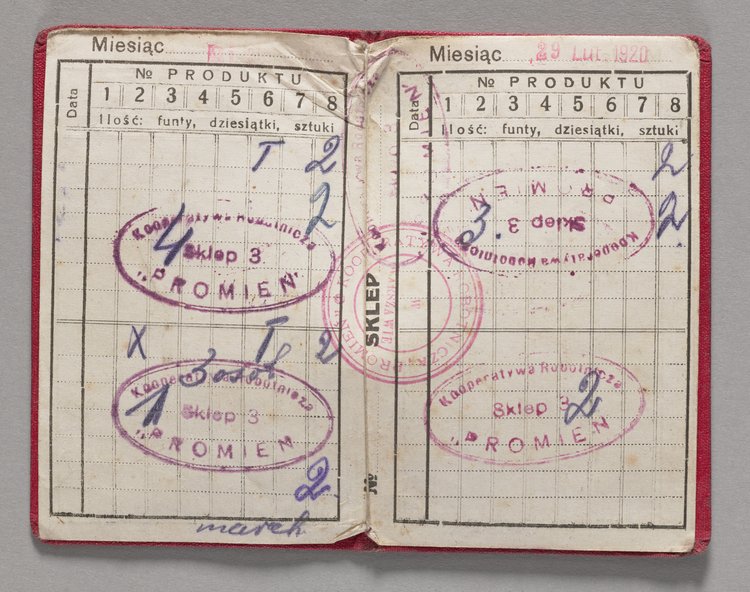 Miesiąc
№ PRODUKTU
Data
1 2 3 4 5 6 7 8
Ilość: funty, dziesiątki, sztuki
T 2
2
Kooperatywa Robotnicza
4 Sklep 3
„PROMIEŃ"
X T 2
3 osób
Kooperatywa Robotnicza
1 Sklep 3
„PROMIEŃ
2
march
№ SKLEP
KOOPERATYWA ROBOTNICZA „PROMIEŃ"
W WARSZAWIE
Miesiąc 29 LUT. 1920
№ PRODUKTU
Data
1 2 3 4 5 6 7 8
Ilość: funty, dziesiątki, sztuki
2
2
Kooperatywa Robotnicza
3. Sklep 3
PROMIEŃ
Kooperatywa Robotnicza
Sklep 3 2
„PROMIEŃ